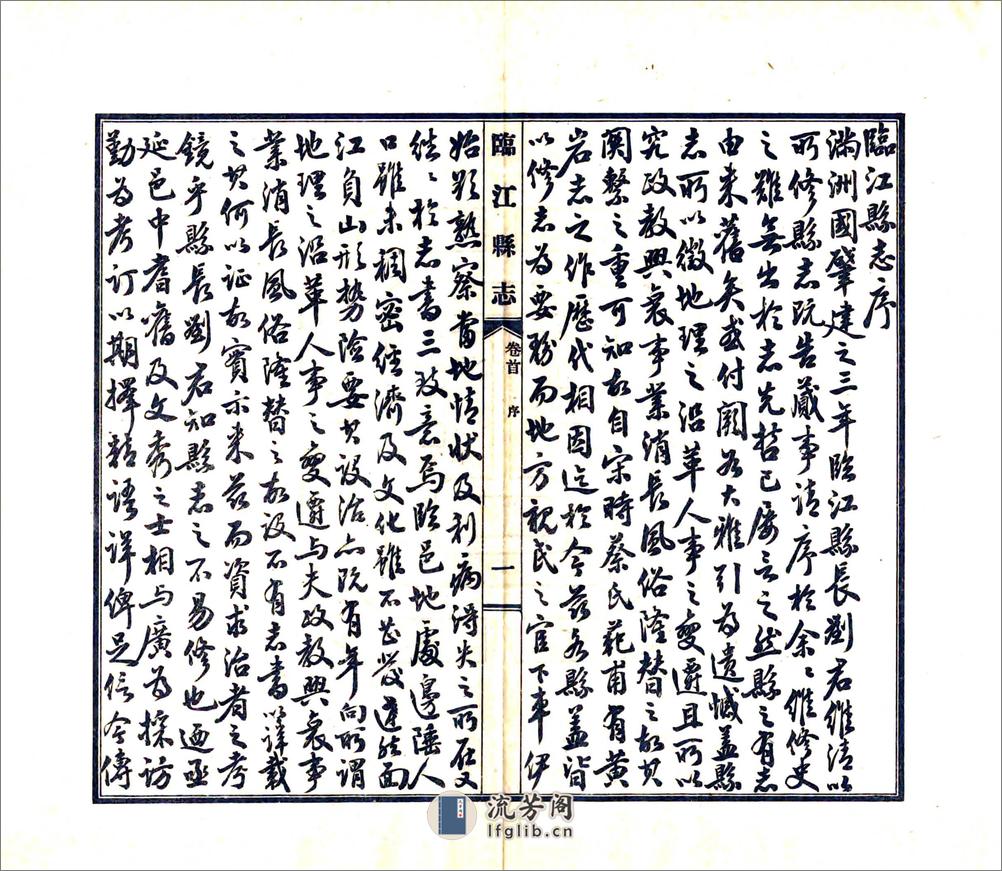 臨江縣志序
滿洲國肇建之三年臨江縣長劉君維清以
所修縣志既告蕆事請序於余余維修史
之難無出於志先哲已屢言之然縣之有志
由來舊矣或付闕如大雅引為遺憾蓋縣
志所以徵地理之沿革人事之變遷且所以
究政教興衰事業消長風俗隆替之故其
関繫之重可知故自宋時蔡氏範甫有黃
岩志之作歷代相因迄於今茲各縣蓋皆
以修志為要務而地方親民之官下車伊
臨江縣志
卷首
序
一
始欲熟察當地情狀及利病得失之所在又
往往於志書三致意焉臨邑地處邊陲人
口雖未稠密經濟及文化雖不甚發達然面
江負山形勢險要其設治亦既有年向所謂
地理之沿革人事之變遷与夫政教興衰事
業消長風俗隆替之故設不有志書以詳載
之其何以証故實示來茲而資求治者之考
鏡乎縣長劉君知縣志之不易修也迺亟
延邑中耆舊及文秀之士相与廣為採訪
勤為考訂以期擇精語詳俾足信今傳
流芳阁
lfglib.cn